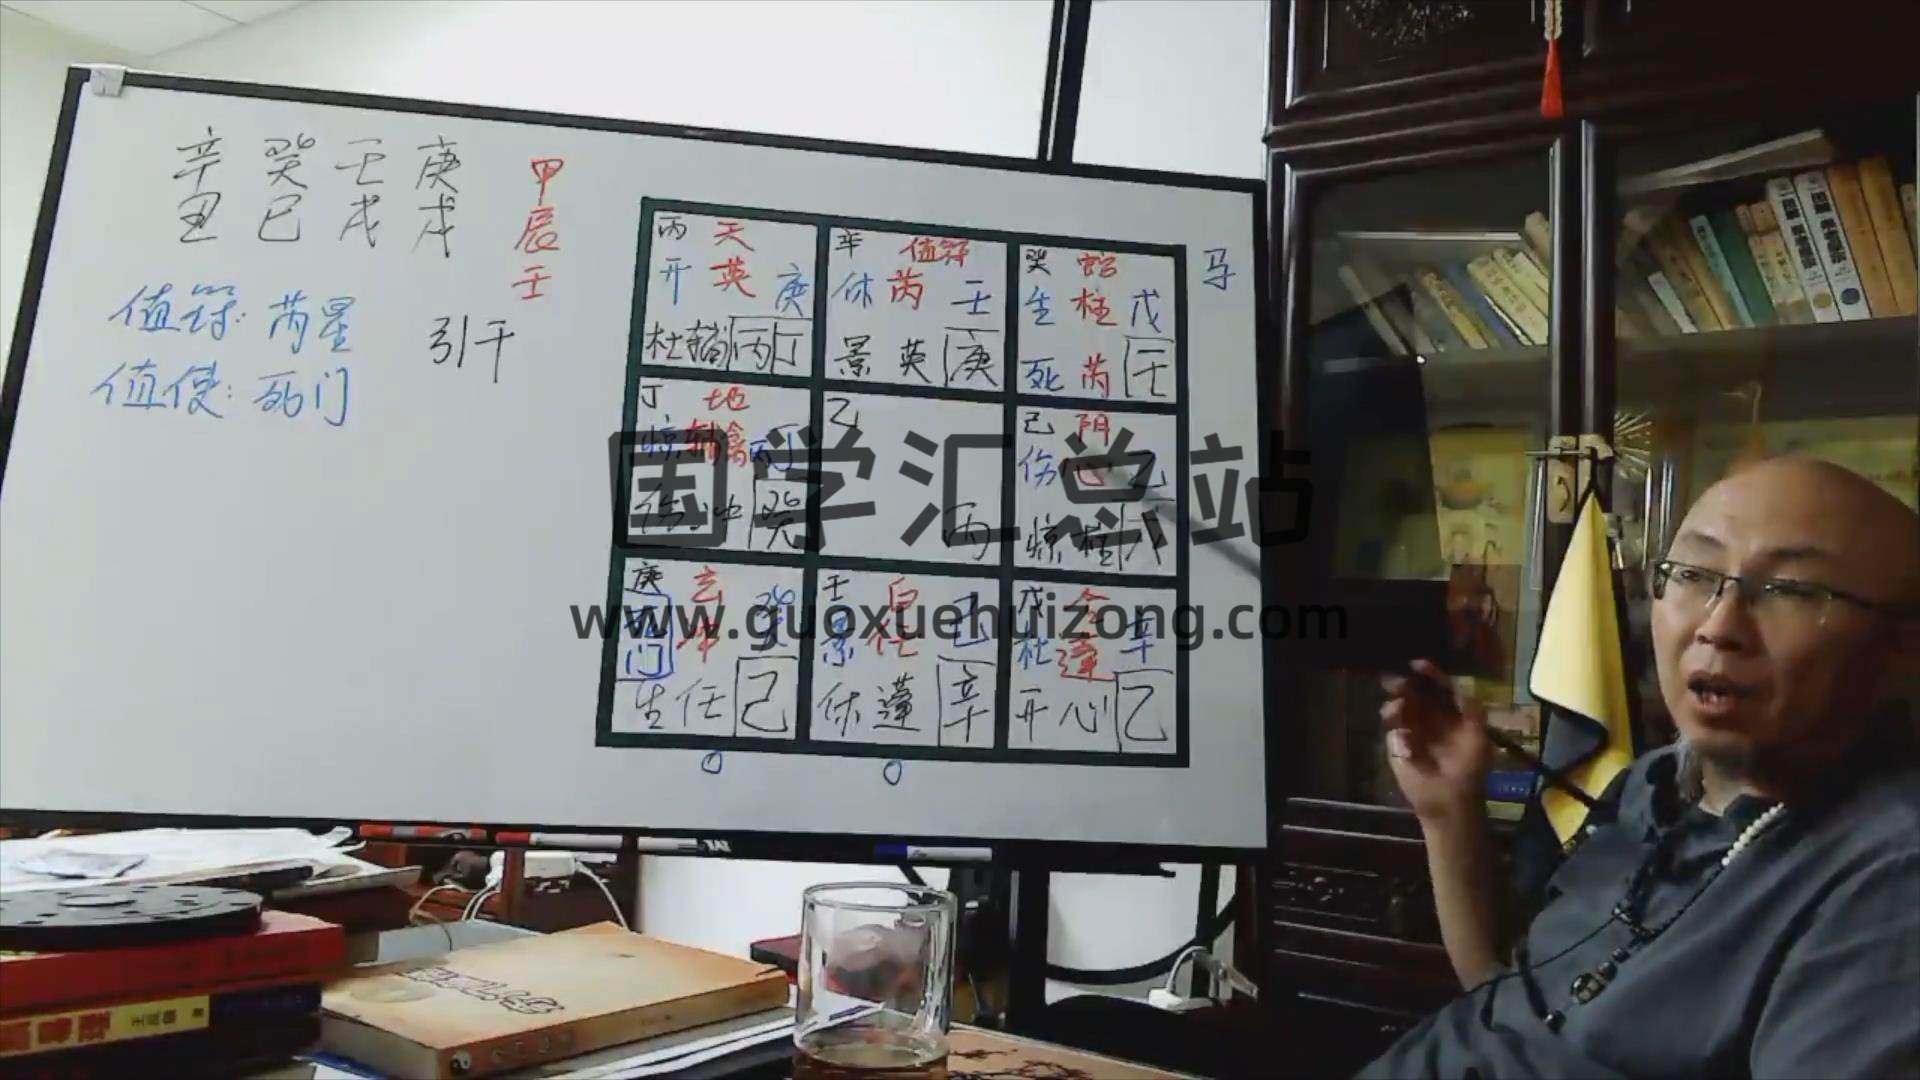 辛 癸 壬 庚
丑 巳 戌 戌
甲
辰
壬
值符: 芮星
值使: 死门
引干
丙 天
开 英 庚
杜 辅 丙 丁
辛 值符
休 芮 壬
景 英 庚
癸 蛇
生 柱 戊
死 芮 壬
马
丁 地
惊 辅 禽 丙 丁
伤 冲 癸
乙
丙
己 阴
伤 心 乙
惊 柱 戊
庚 玄
死门 冲 癸
生 任 己
壬 白
景 任 己
休 蓬 辛
戊 合
杜 蓬 辛
开 心 乙
国学汇总站
www.guoxuehuizong.com